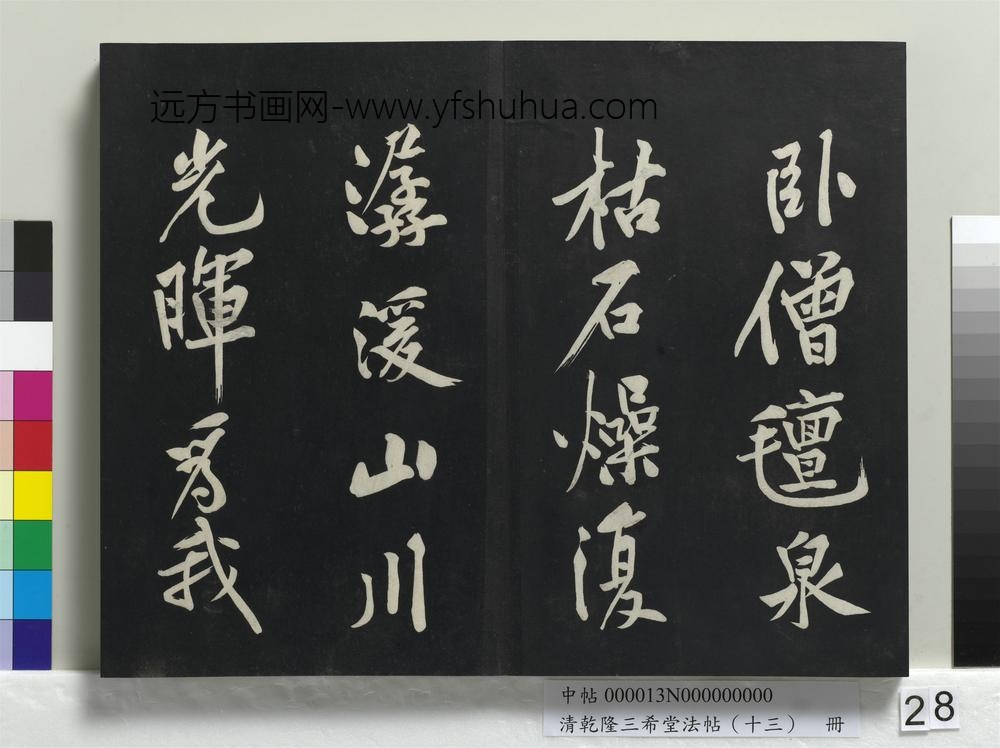 远方书画网-www.yfshuhua.com
卧僧氈泉
枯石燥復
潺湲山川
光暉為我
中帖 000013N000000000
清乾隆三希堂法帖（十三） 冊
28